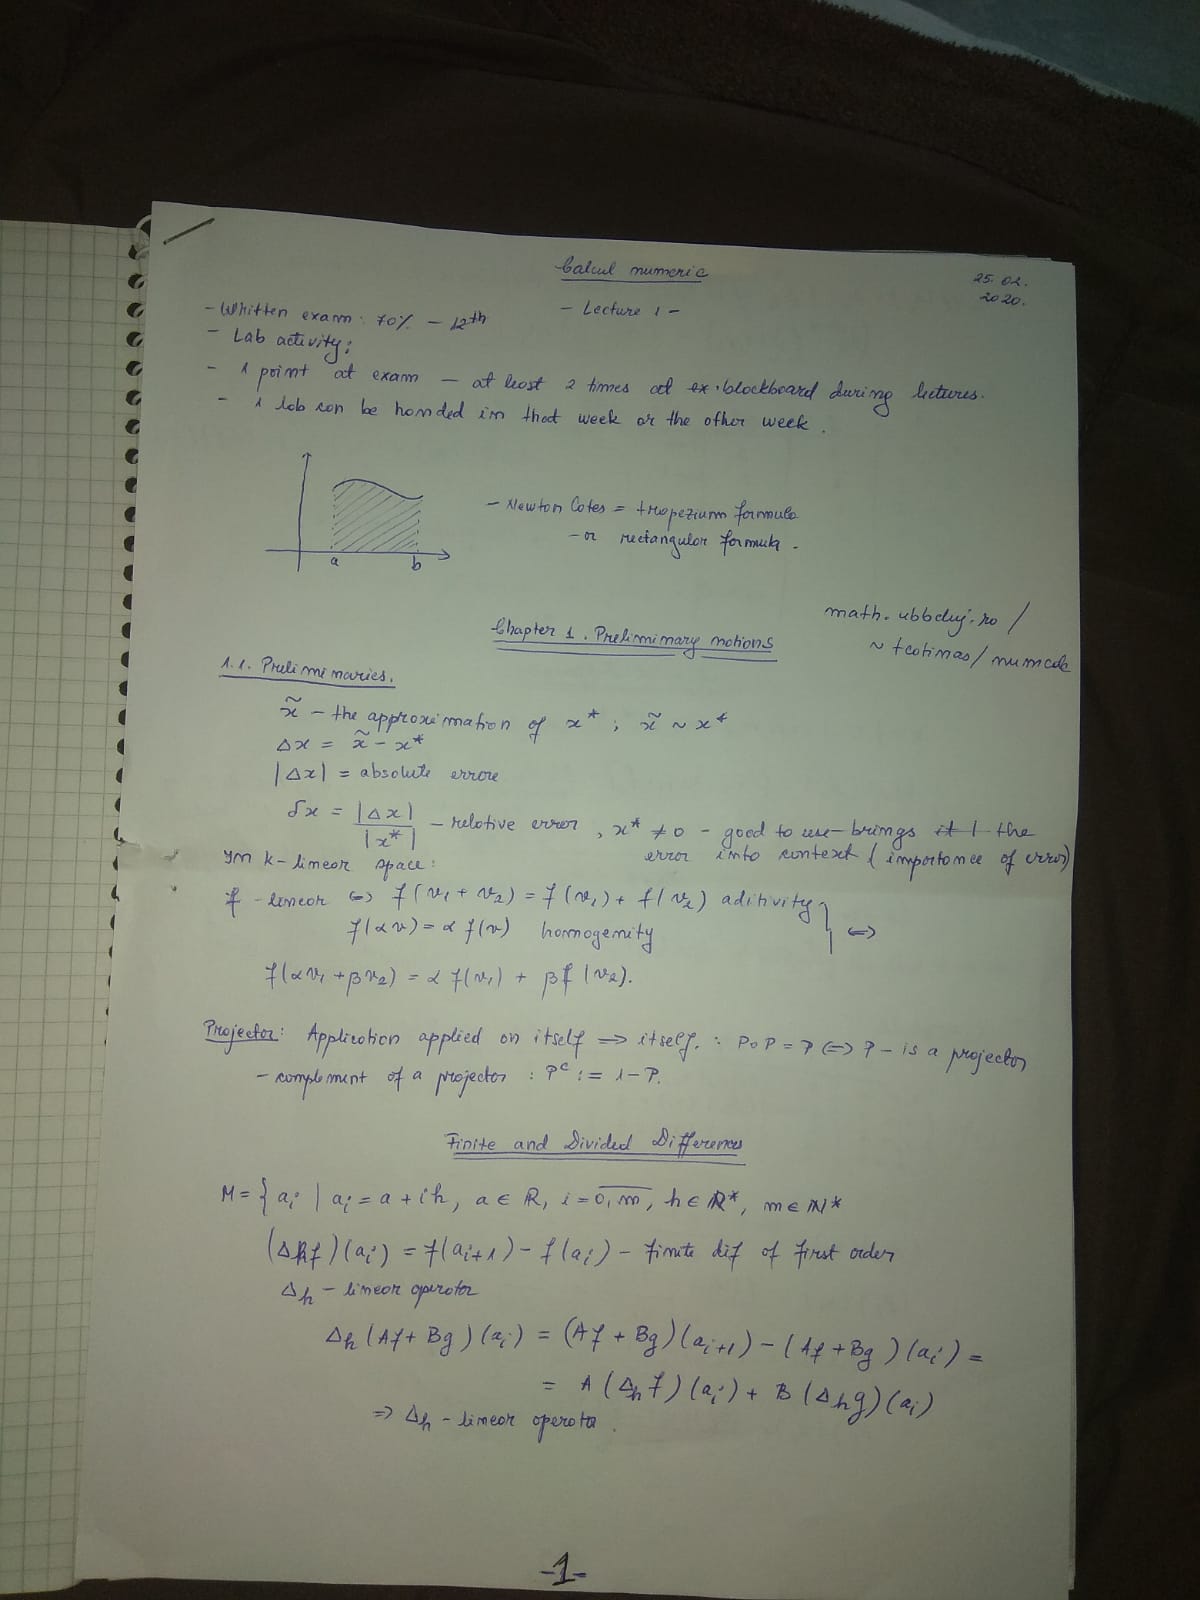 Calcul numeric
25.02.
2020.
- Lecture 1 -
- Whitten exam: 70% - 12th
- Lab activity:
- 1 point at exam - at least 2 times at ex. blackboard during lectures.
- 1 lab can be handed in that week or the other week.
- Newton Cotes = trapezium formula
- or rectangular formula.
a b
math.ubbcluj.ro/
~tcatinas/numcalc
Chapter 1. Preliminary notions
1.1. Preliminaries.
x̃ - the approximation of x* ; x̃ ~ x*
Δx = x̃ - x*
|Δx| = absolute error
δx = |Δx| / |x*| - relative error, x* ≠ 0 - good to use - brings it the
error into context (importance of error)
In k-linear space:
f - linear <=> f(v₁ + v₂) = f(v₁) + f(v₂) aditivity
f(αv) = α f(v) homogenity } <=>
f(αv₁ + βv₂) = α f(v₁) + βf(v₂).
Projector: Application applied on itself => itself. : P∘P = P <=> P - is a projector
- complement of a projector : Pᶜ := 1 - P.
Finite and Divided Differences
M = { aᵢ | aᵢ = a + ih, a ∈ ℝ, i = 0,m, h ∈ ℝ*, m ∈ ℕ*
(Δhf)(aᵢ) = f(aᵢ₊₁) - f(aᵢ) - finite dif of first order
Δh - linear operator
Δh(Af + Bg)(aᵢ) = (Af + Bg)(aᵢ₊₁) - (Af + Bg)(aᵢ) =
= A(Δhf)(aᵢ) + B(Δhg)(aᵢ)
=> Δh - linear operator.
-1-